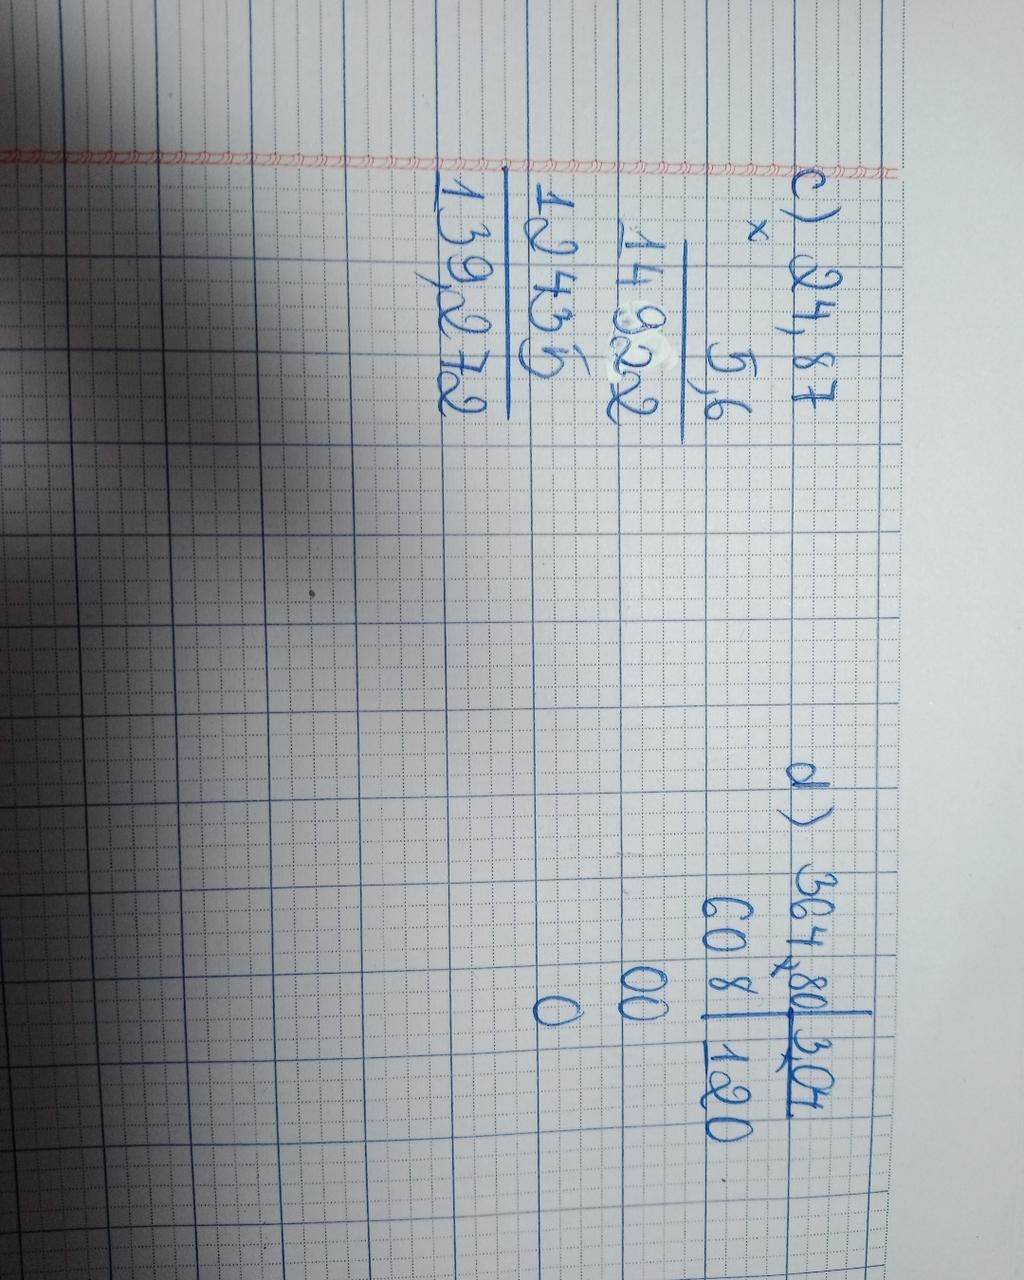 c) 24,87
×
5,6
14922
12435
139,272
d) 364,80 3,04
608 120
00
0